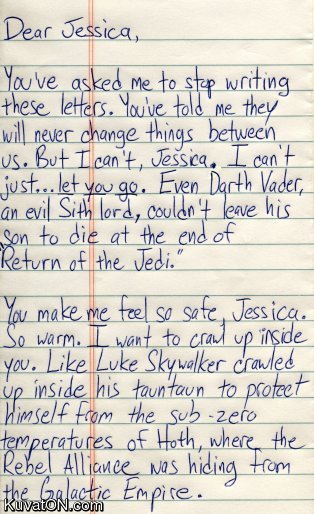 Dear Jessica,
You've asked me to stop writing
these letters. You've told me they
will never change things between
us. But I can't, Jessica. I can't
just...let you go. Even Darth Vader,
an evil Sith lord, couldn't leave his
son to die at the end of
"Return of the Jedi."
You make me feel so safe, Jessica.
So warm. I want to crawl up inside
you. Like Luke Skywalker crawled
up inside his tauntaun to protect
himself from the sub-zero
temperatures of Hoth, where the
Rebel Alliance was hiding from
the Galactic Empire.
KuvatON.com